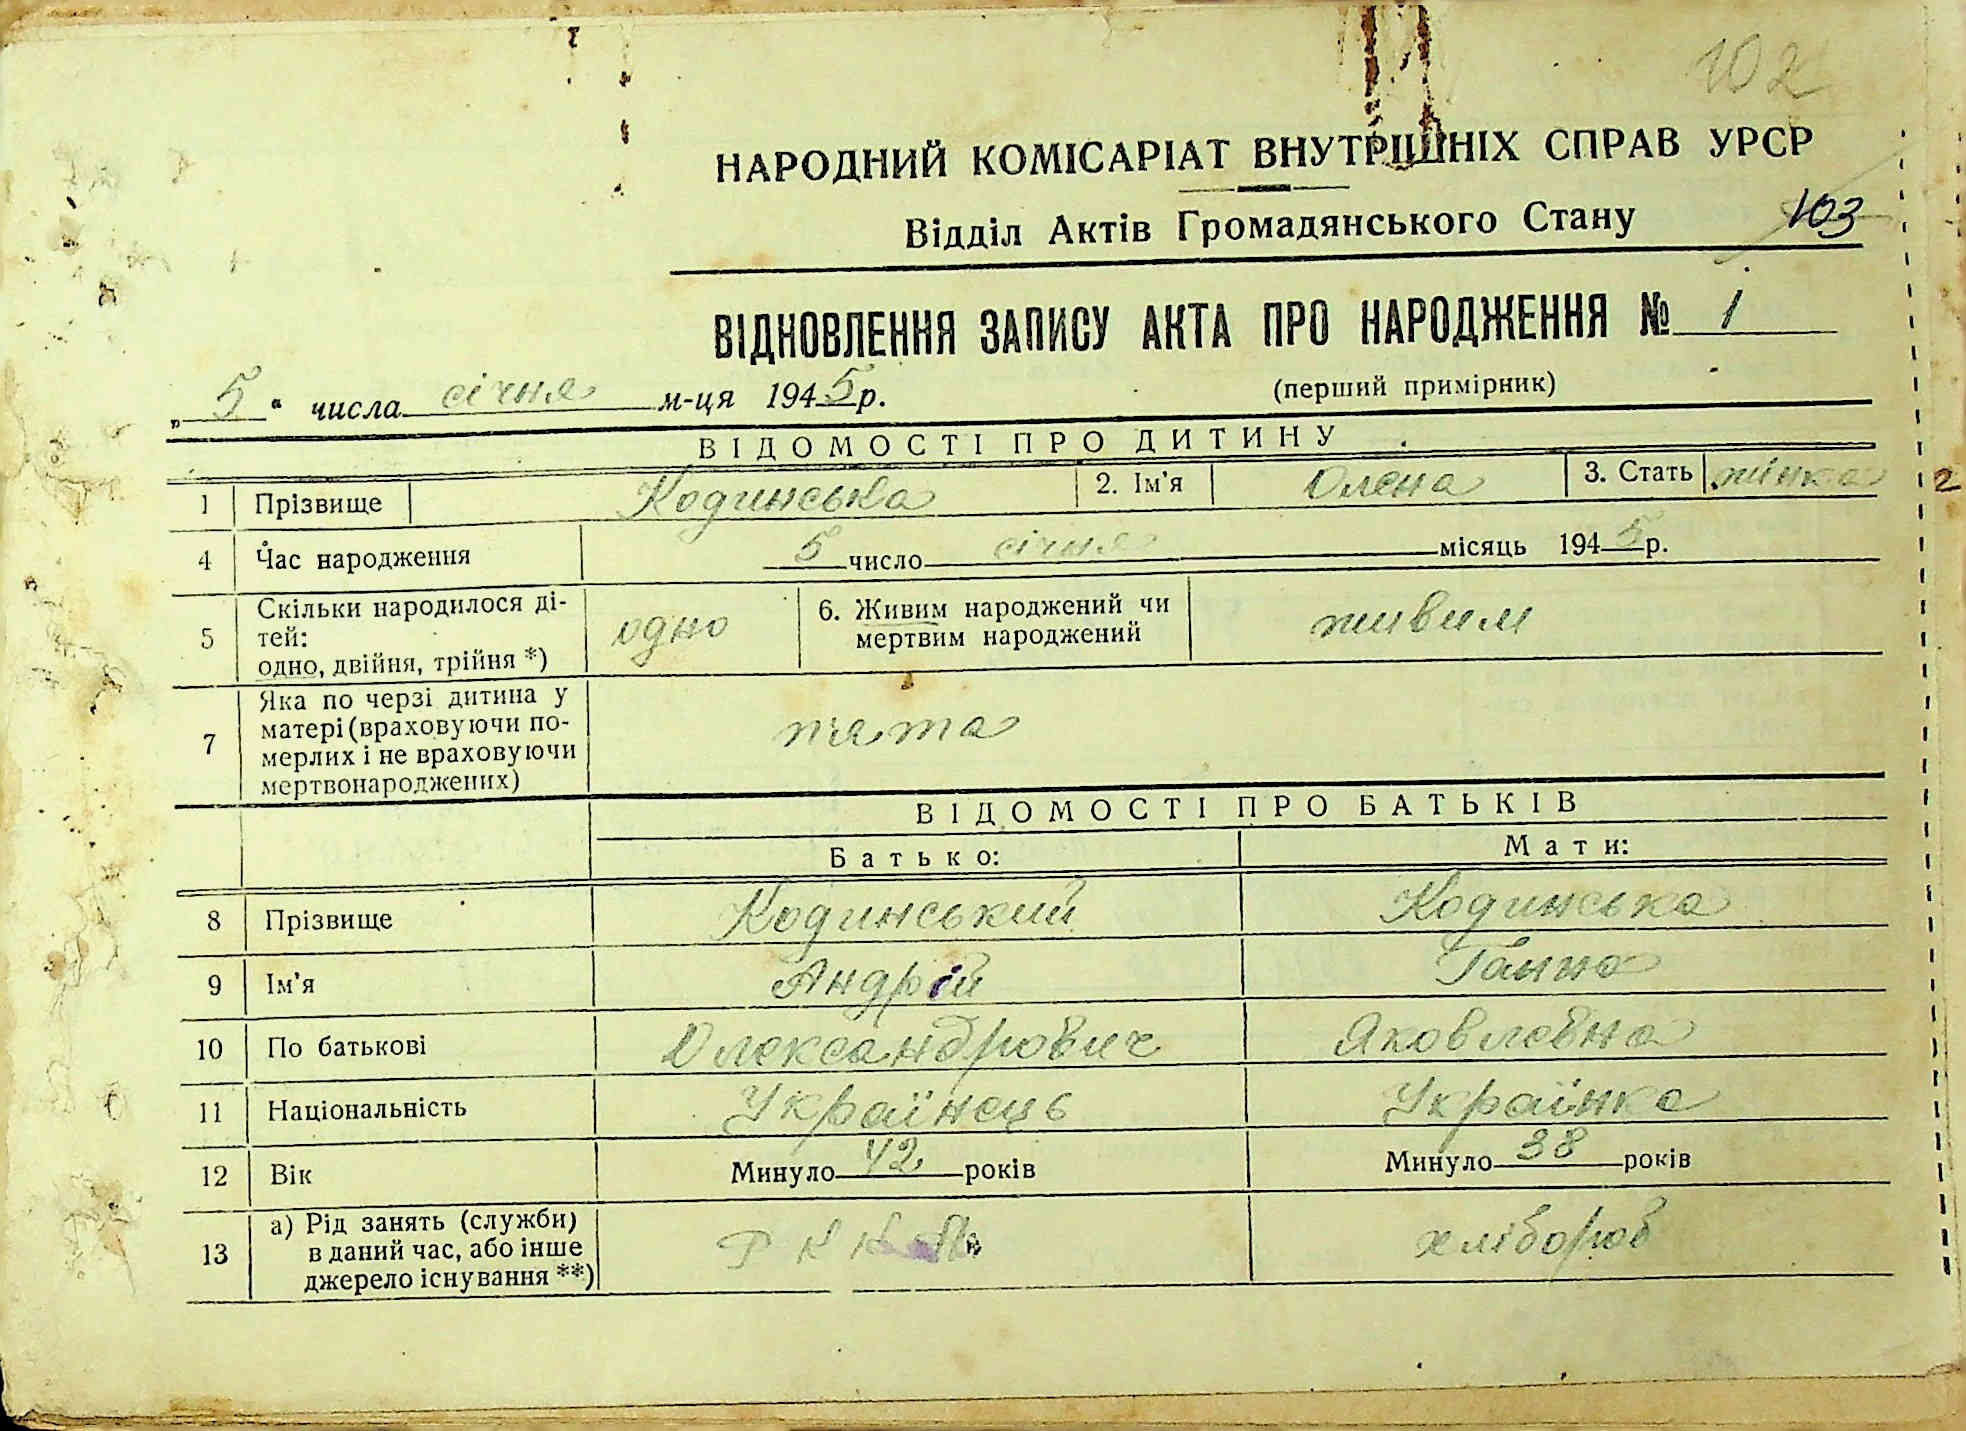 102
НАРОДНИЙ КОМІСАРІАТ ВНУТРІШНІХ СПРАВ УРСР
Відділ Актів Громадянського Стану
103
ВІДНОВЛЕННЯ ЗАПИСУ АКТА ПРО НАРОДЖЕННЯ № 1
„5“ числа січня м-ця 1945р.
(перший примірник)
ВІДОМОСТІ ПРО ДИТИНУ
1 Прізвище Кодинська 2. Ім'я Олена 3. Стать жінка
2
4 Час народження 5 число січня місяць 1945р.
5 Скільки народилося ді-
тей:
одно, двійня, трійня *)
одно
6. Живим народжений чи
мертвим народжений
живим
7 Яка по черзі дитина у
матері (враховуючи по-
мерлих і не враховуючи
мертвонароджених)
пята
ВІДОМОСТІ ПРО БАТЬКІВ
Батько: Мати:
8 Прізвище Кодинський Кодинська
9 Ім'я Андрій Ганна
10 По батькові Олександрович Яковлевна
11 Національність Українець Українка
12 Вік Минуло 42 років Минуло 38 років
13 а) Рід занять (служби)
в даний час, або інше
джерело існування **)
хлібороб